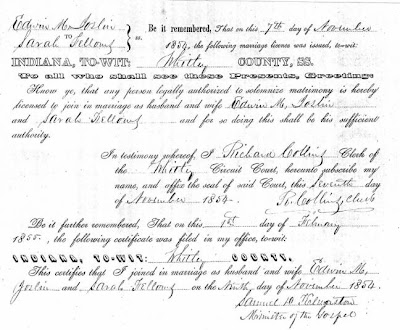 Edwin M. Joslin
TO
Sarah Fellows
ss. Be it remembered, That on this 7th day of November
1854, the following marriage license was issued, to-wit:
INDIANA, TO-WIT: Whitley COUNTY, SS.
To all who shall see these Presents, Greeting:
Know ye, that any person legally authorized to solemnize matrimony is hereby
licensed to join in marriage as husband and wife Edwin M. Joslin
and Sarah Fellows and for so doing this shall be his sufficient
authority.
In testimony whereof, I Richard Collins Clerk of
the Whitley Circuit Court, hereunto subscribe my
name, and affix the seal of said Court, this Seventh day
of November 1854. R. Collins Clerk
Be it further remembered, That on this day of February
1855, the following certificate was filed in my office, to-wit:
INDIANA, TO-WIT: Whitley COUNTY.
This certifies that I joined in marriage as husband and wife Edwin M.
Joslin and Sarah Fellows on the Ninth day of November 1854
Samuel D.
Minister of the Gospel